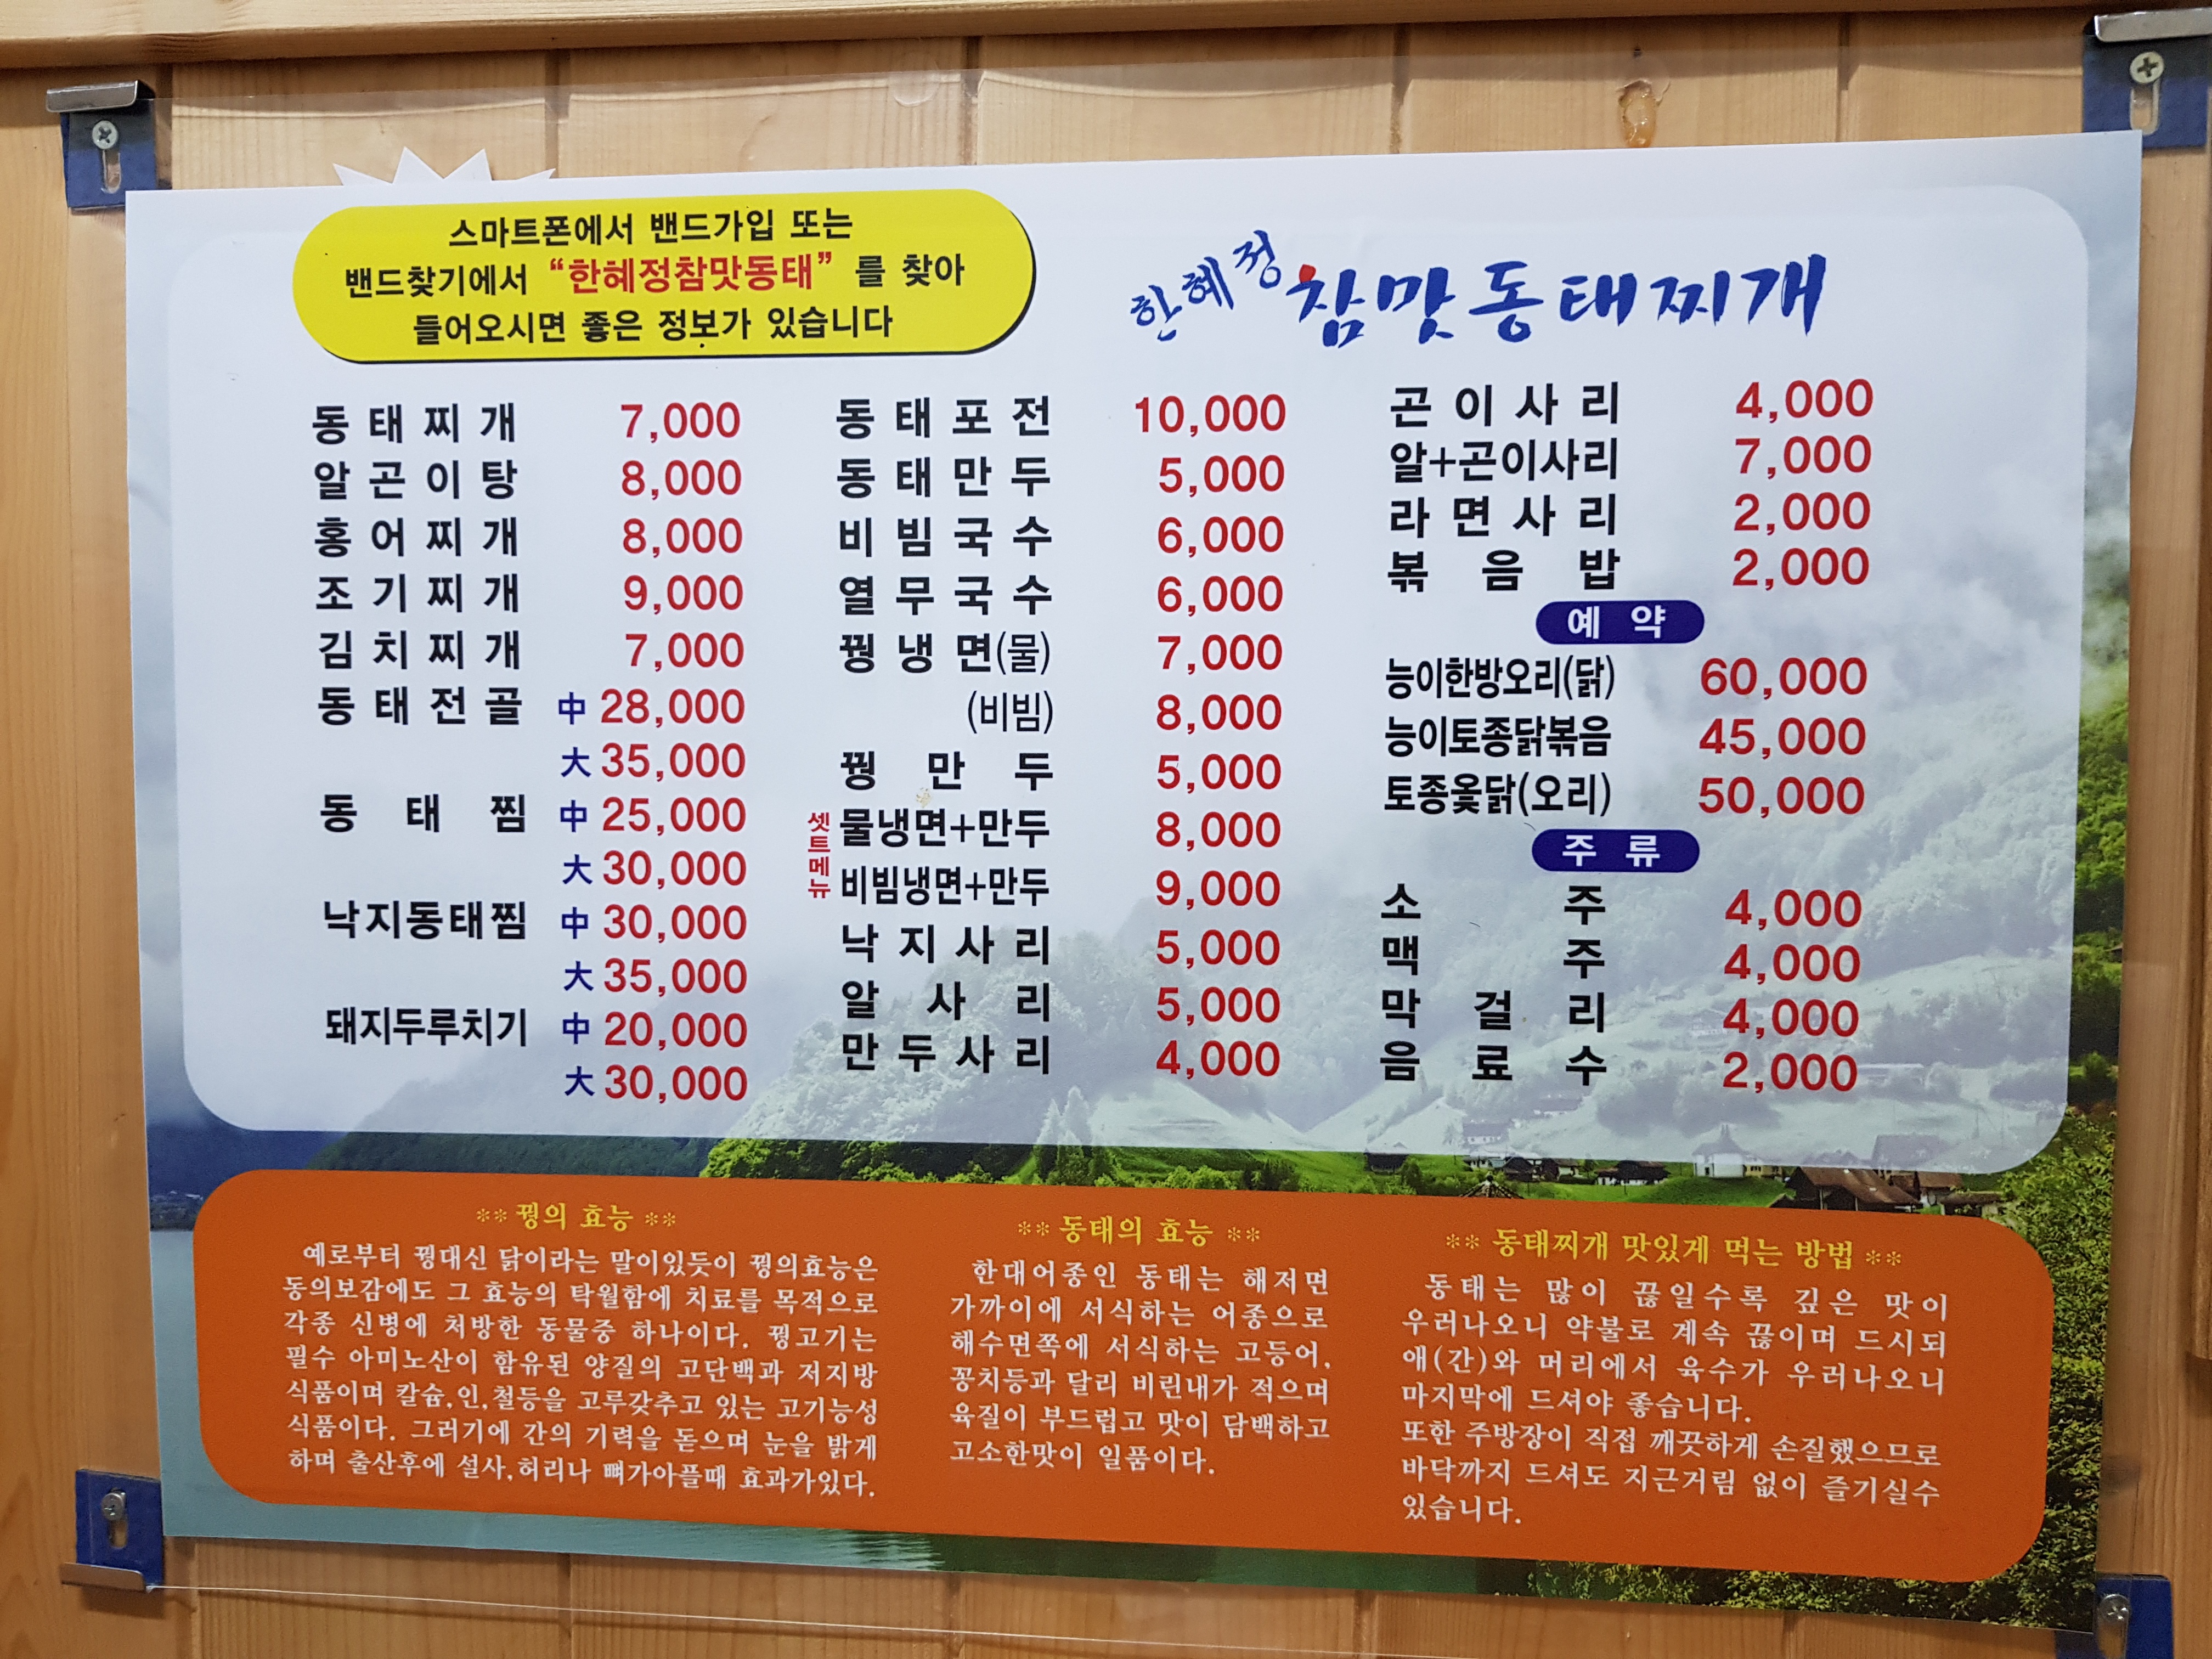 스마트폰에서 밴드가입 또는
밴드찾기에서 "한혜정참맛동태" 를 찾아
들어오시면 좋은 정보가 있습니다
한혜정 참맛동태찌개
동태찌개 7,000
알곤이탕 8,000
홍어찌개 8,000
조기찌개 9,000
김치찌개 7,000
동태전골 中 28,000
大 35,000
동태찜 中 25,000
大 30,000
낙지동태찜 中 30,000
大 35,000
돼지두루치기 中 20,000
大 30,000
동태포전 10,000
동태만두 5,000
비빔국수 6,000
열무국수 6,000
꿩냉면(물) 7,000
(비빔) 8,000
꿩만두 5,000
셋트메뉴
물냉면+만두 8,000
비빔냉면+만두 9,000
낙지사리 5,000
알사리 5,000
만두사리 4,000
곤이사리 4,000
알+곤이사리 7,000
라면사리 2,000
볶음밥 2,000
예약
능이한방오리(닭) 60,000
능이토종닭볶음 45,000
토종옻닭(오리) 50,000
주류
소주 4,000
맥주 4,000
막걸리 4,000
음료수 2,000
** 꿩의 효능 **
예로부터 꿩대신 닭이라는 말이있듯이 꿩의효능은
동의보감에도 그 효능의 탁월함에 치료를 목적으로
각종 신병에 처방한 동물중 하나이다. 꿩고기는
필수 아미노산이 함유된 양질의 고단백과 저지방
식품이며 칼슘,인,철등을 고루갖추고 있는 고기능성
식품이다. 그러기에 간의 기력을 돋으며 눈을 밝게
하며 출산후에 설사,허리나 뼈가아플때 효과가있다.
** 동태의 효능 **
한대어종인 동태는 해저면
가까이에 서식하는 어종으로
해수면쪽에 서식하는 고등어,
꽁치등과 달리 비린내가 적으며
육질이 부드럽고 맛이 담백하고
고소한맛이 일품이다.
** 동태찌개 맛있게 먹는 방법 **
동태는 많이 끊일수록 깊은 맛이
우러나오니 약불로 계속 끊이며 드시되
애(간)와 머리에서 육수가 우러나오니
마지막에 드셔야 좋습니다.
또한 주방장이 직접 깨끗하게 손질했으므로
바닥까지 드셔도 지근거림 없이 즐기실수
있습니다.